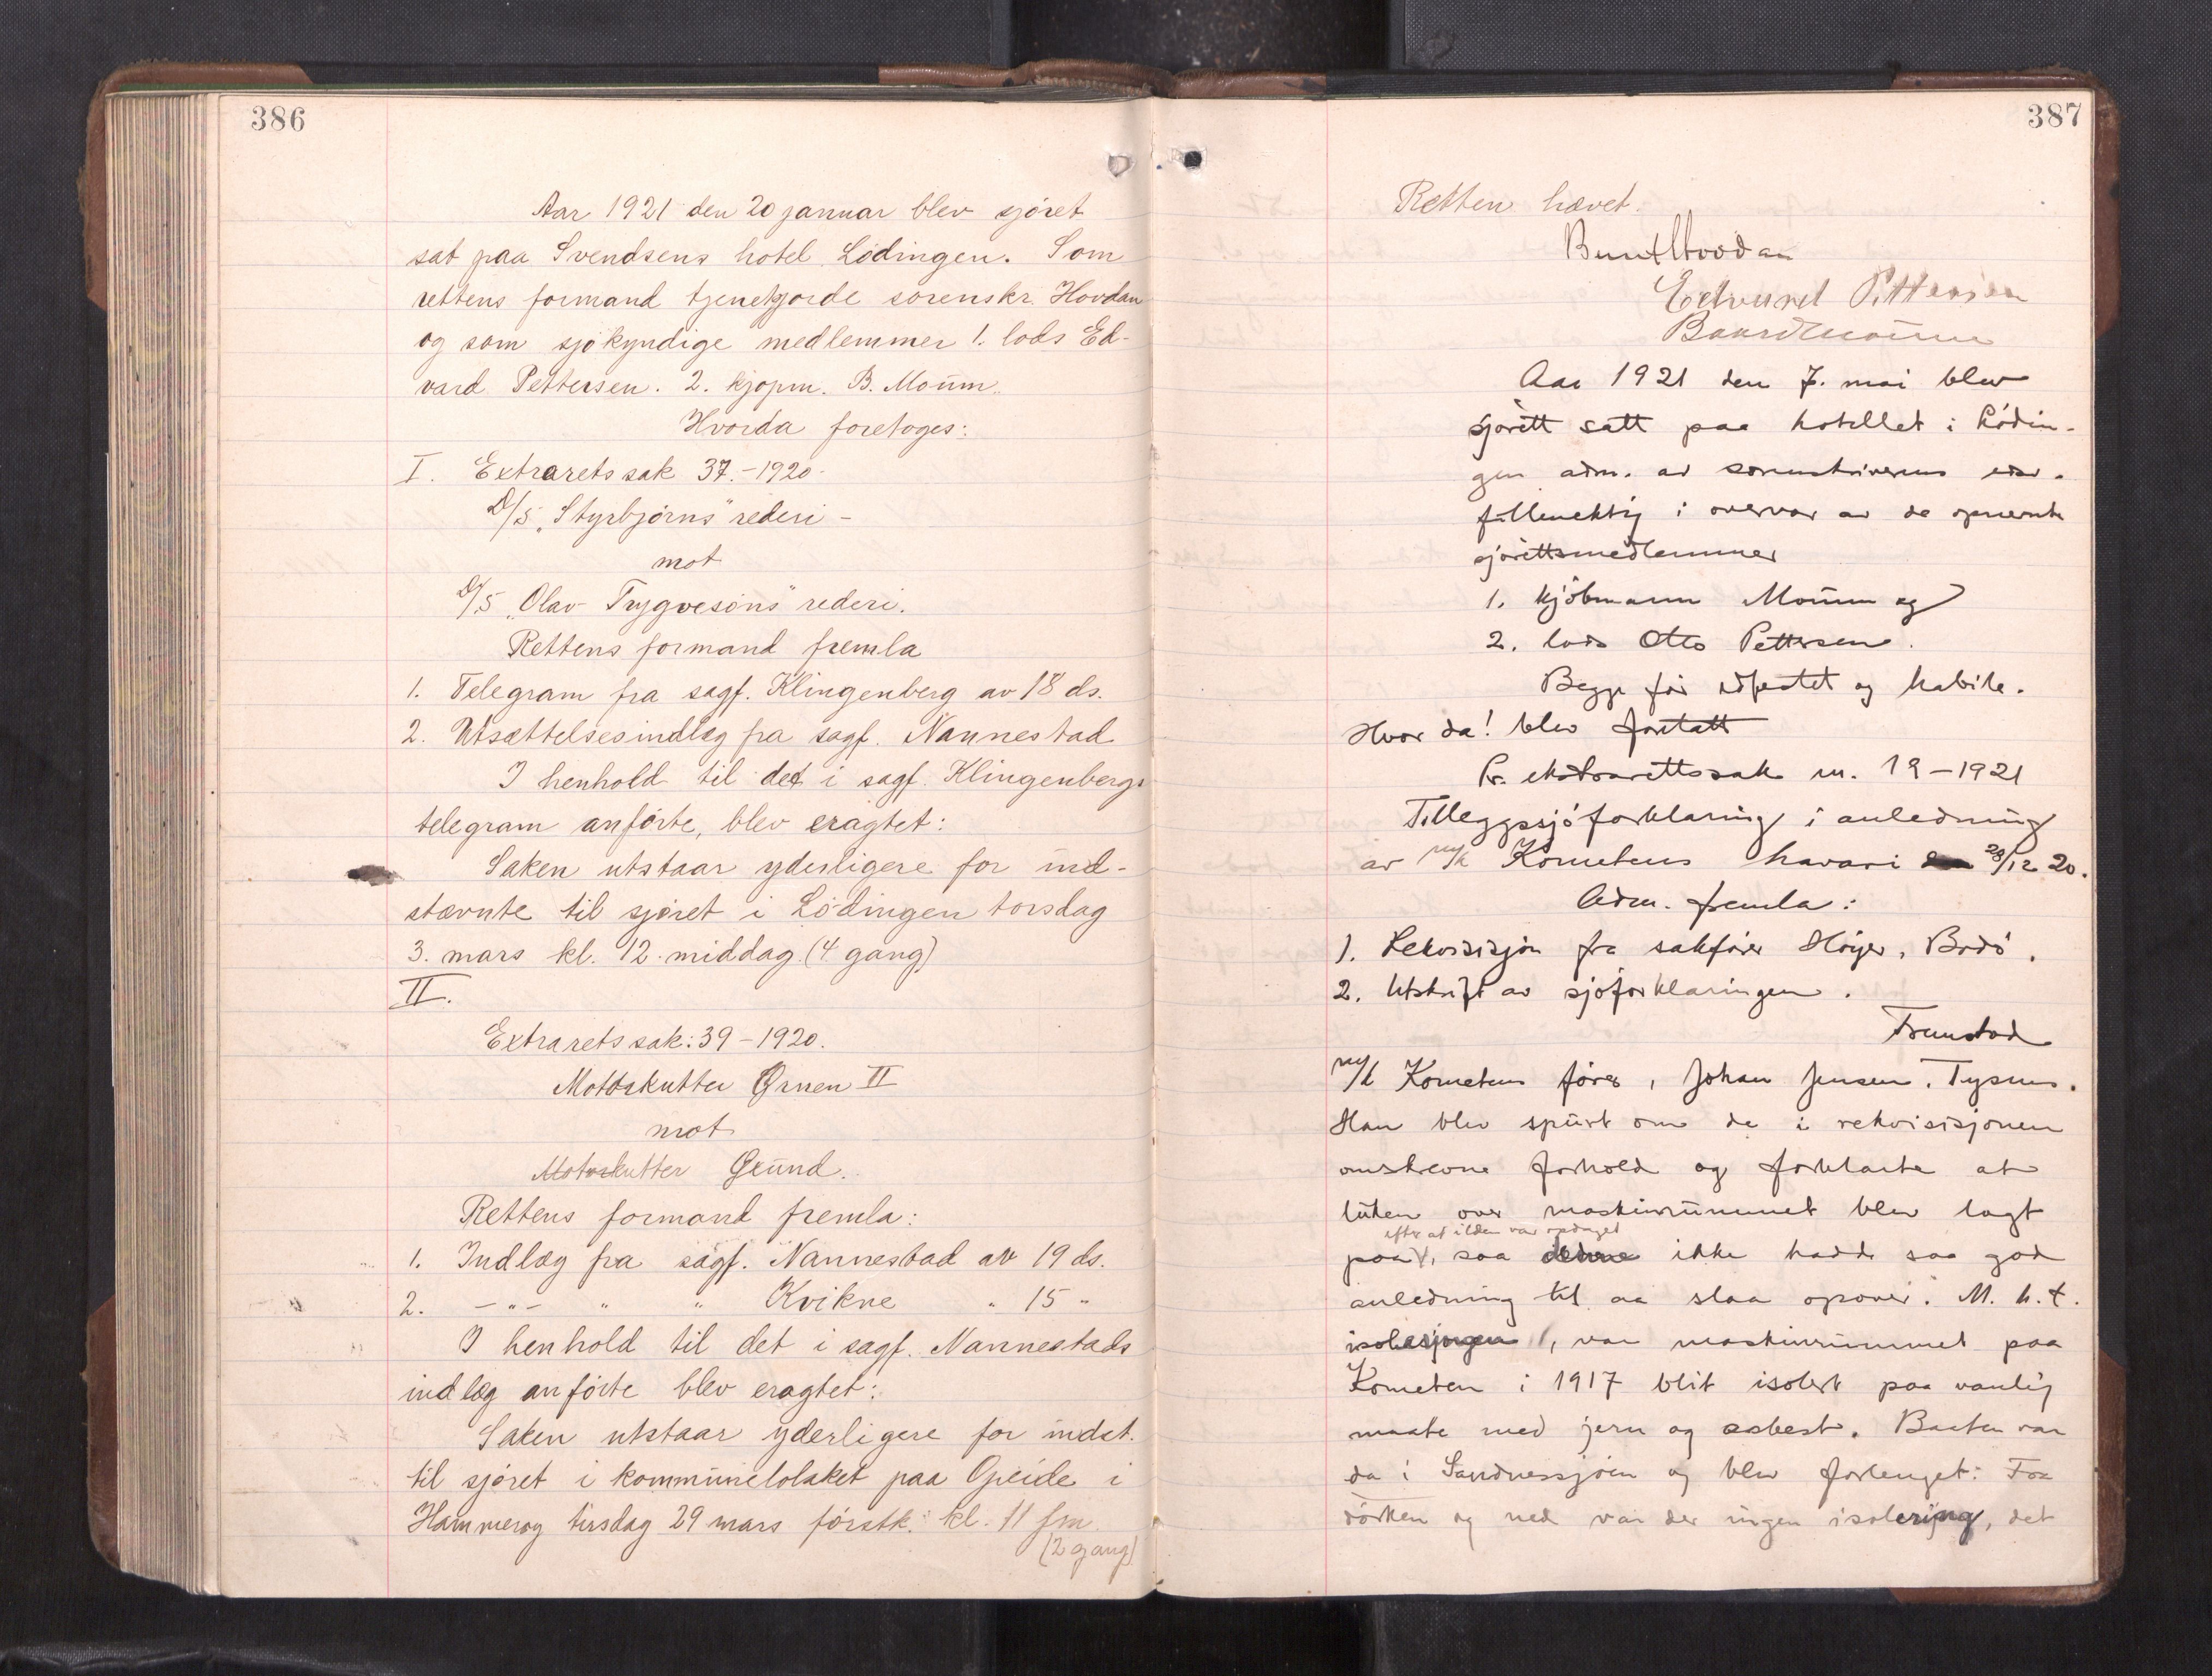 386
Aar 1921 den 20 januar blev sjöret
sat paa Svendsens hotel Lödingen. Som
rettens formand tjenekgjorde sorenskr. Hovdan
og som sjökyndige medlemmer 1. lods Ed-
vard Pettersen. 2. kjøpm. B. Moum.
Hvorda foretoges:
I. Extraretssak 37.-1920.
D/S „Styrbjörns" rederi -
mot
D/S „Olav Trygvesöns" rederi.
Rettens formand fremla
1. Telegram fra sagf. Klingenberg av 18 ds.
2. Utsættelsesindlæg fra sagf. Nannestad
I henhold til det i sagf. Klingenbergs
telegram anförte, blev eragtet:
Saken utstaar yderligere for ind-
stævnte til sjöret i Lödingen torsdag
3. mars kl. 12. middag. (4 gang)
II.
Extraretssak: 39 - 1920.
Motorkutter Ørnen II
mot
Motorkutter Grund.
Rettens formand fremla:
1. Indlæg fra sagf. Nannestad av 19 ds.
2. -"- " " Kvikne " 15 "
I henhold til det i sagf. Nannestads
indlæg anförte blev eragtet:
Saken utstaar yderligere for indst.
til sjöret i kommunelokalet paa Opeide i
Hammeröy tirsdag 29 mars förstk. kl. 11 fm.
(2 gang)
387
Retten hævet.
Bernt Hovdan
Edvard Pettersen
Baard Moum
Aar 1921 den 7. mai blev
sjörett satt paa hotellet i Lödin-
gen adm. av sorenskriverens
fullmektig i overvær av de opnevnte
sjörettsmedlemmer
1. kjöbmann Moum og
2. lods Otto Pettersen.
Begge för edfestet og habile.
Hvor da! blev foretatt
Pr. ekstrarettssak nr. 19-1921
Tilleggssjöforklaring i anledning
av m/k Kometens havari 28/12 20.
Adm. fremla:
1. Rekvisisjon fra sakförer Höyer, Bodö.
2. Utskrift av sjöforklaringen.
Fremstod
m/k Kometens förer, Johan Jensen, Tysnes.
Han blev spurt om de i rekvisisjonen
omskrevne forhold og forklarte at
luken over maskinrummet blev lagt
efter at ilden var opdaget
paa, saa denne ikke hadde saa god
anledning til aa slaa opover. M. h. t.
isolasjonen, var maskinrummet paa
Kometen i 1917 blit isolert paa vanlig
maate med jern og asbest. Baaten var
da i Sandnessjöen og blev forlenget. Fra
dörken og ned var der ingen isolering, det